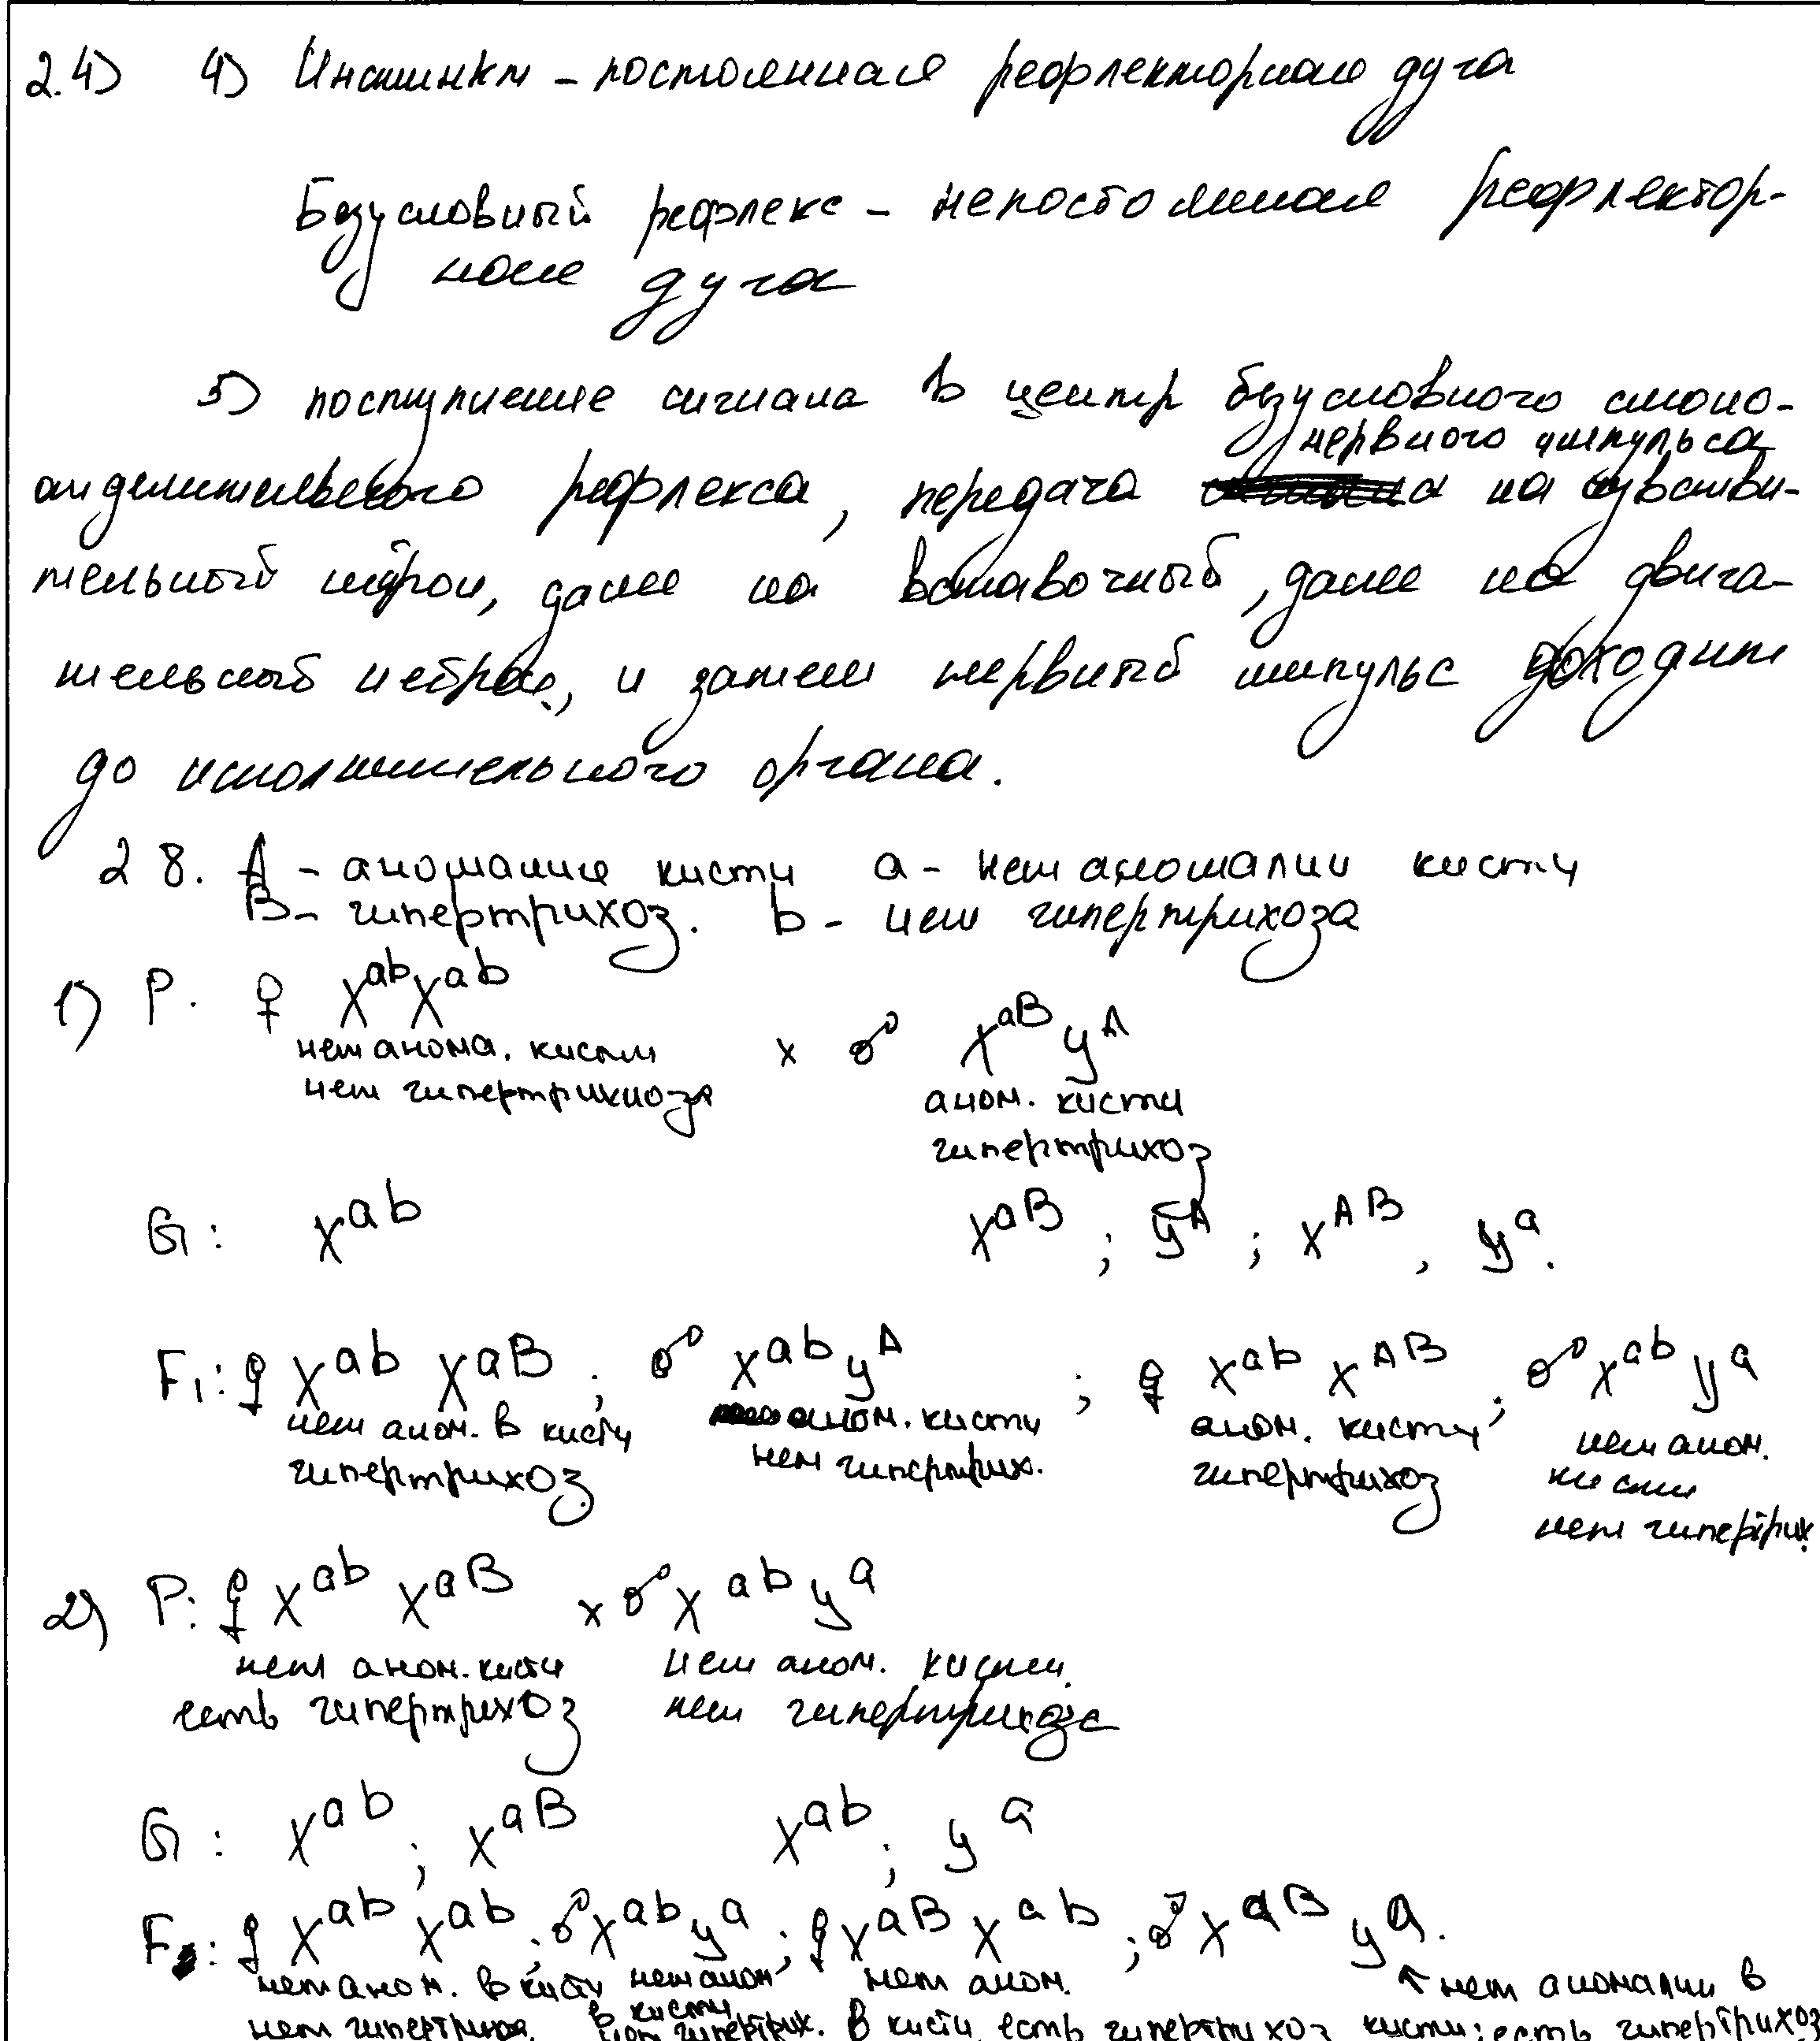 2.4) 4) Инстинкт – постоянная рефлекторная дуга
Безусловный рефлекс – непостоянная рефлектор-
ная дуга
5) поступление сигнала в центр безусловного слюно-
нервного импульса
отделительного рефлекса, передача на чувстви-
тельный нейрон, далее на вставочный, далее на двига-
тельный нейрон, и затем нервный импульс доходит
до исполнительного органа.
28. A – аномалия кисти a – нет аномалии кисти
B – гипертрихоз. b – нет гипертрихоза
1) P. ♀ X^ab X^ab x ♂ X^aB y^A
нет анома. кисти
нет гипертрихиоза
аном. кисти
гипертрихоз
G: X^ab X^aB ; y^A ; X^AB , y^a.
F1: ♀ X^ab X^aB ; ♂ X^ab y^A ; ♀ X^ab X^AB ; ♂ X^ab y^a
нет аном. в кисти
гипертрихоз
аном. кисти
нет гипертрих.
аном. кисти
гипертрихоз
нет аном.
кисти
нет гипертрих.
2) P: ♀ X^ab X^aB x ♂ X^ab y^a
нет аном. кисти нет аном. кисти.
есть гипертрихоз нет гипертрихоза
G: X^ab ; X^aB X^ab ; y^a
F2: ♀ X^ab X^ab ; ♂ X^ab y^a ; ♀ X^aB X^ab ; ♂ X^aB y^a.
нет аном. в кисти
нет гипертрихоза.
нет аном
в кисти
нет гипертрих.
нет аном.
в кисти есть гипертрихоз
↖ нет аномалии в
кисти; есть гипертрихоз